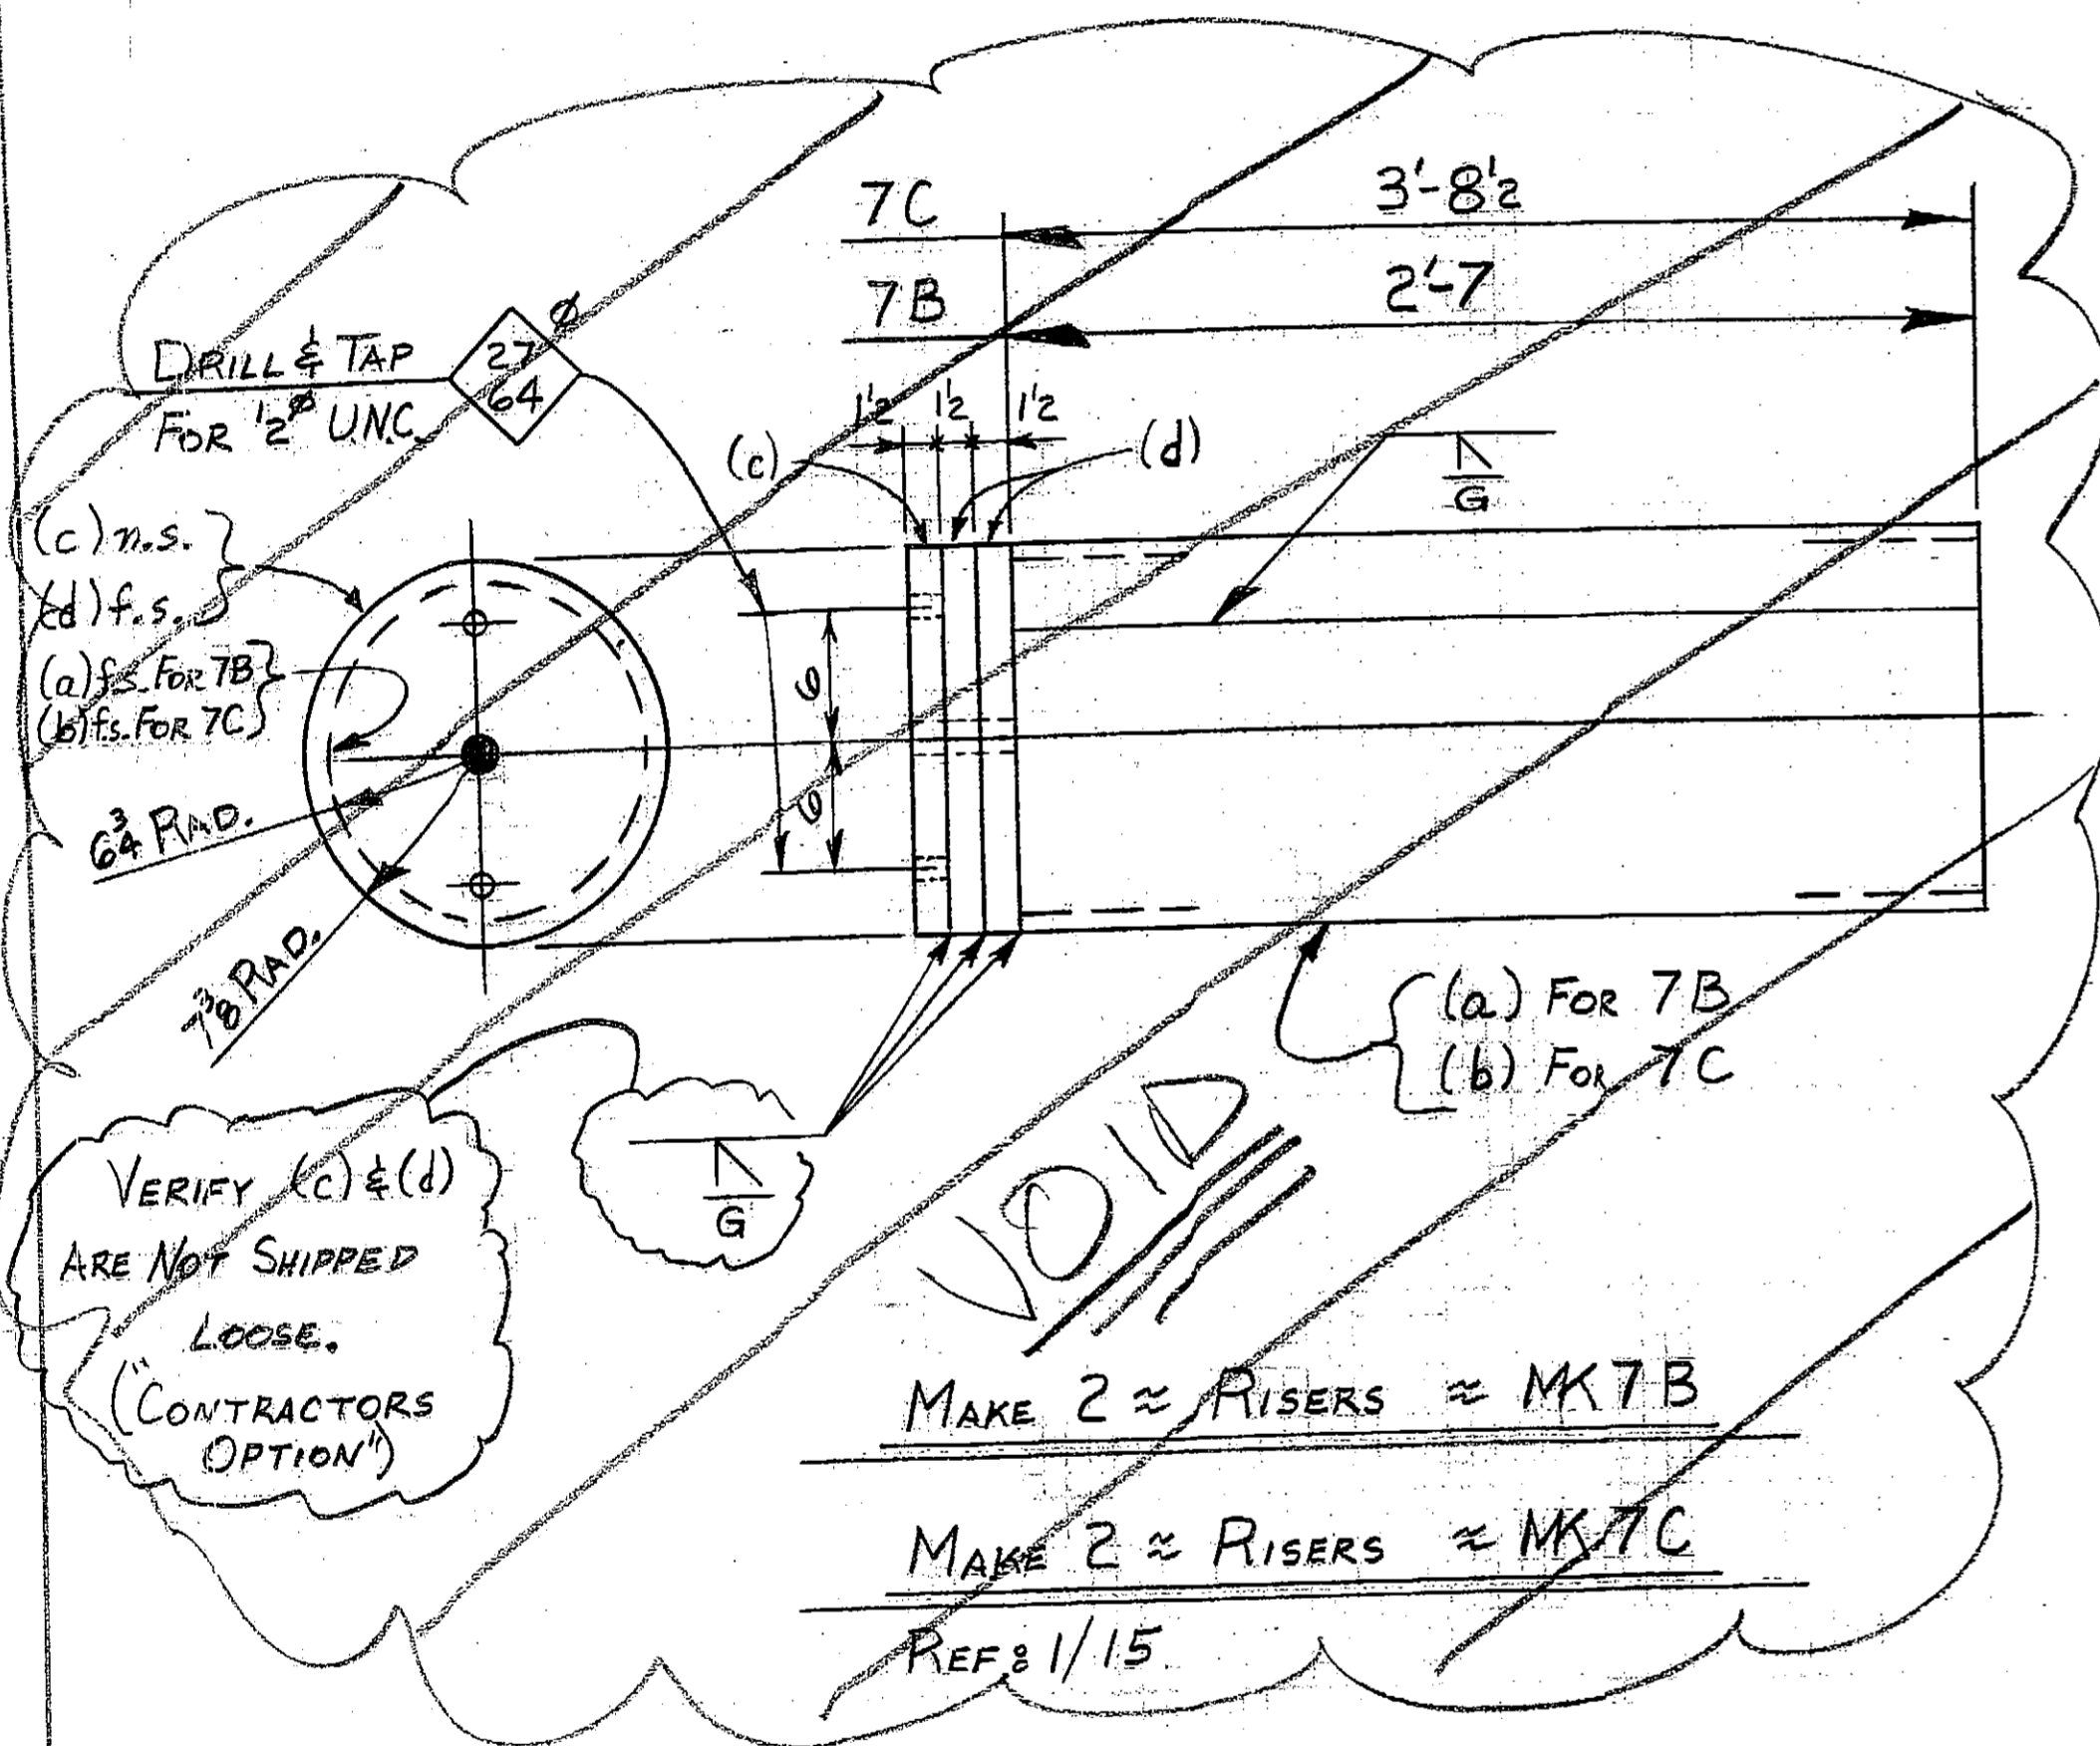 7C
3'-8 1/2
7B
2'-7
DRILL & TAP
27
64
Ø
FOR 1/2 Ø U.N.C.
1 1/2
1 1/2
1 1/2
(c)
(d)
G
(c) n.s.
(d) f.s.
(a) f.s. FOR 7B
(b) f.s. FOR 7C
6
6
6 3/4 RAD.
7 3/8 RAD.
(a) FOR 7B
(b) FOR 7C
VERIFY (c) & (d)
ARE NOT SHIPPED
LOOSE.
("CONTRACTORS
OPTION")
G
VOID
MAKE 2 ≈ RISERS ≈ MK 7B
MAKE 2 ≈ RISERS ≈ MK 7C
REF: 1/15